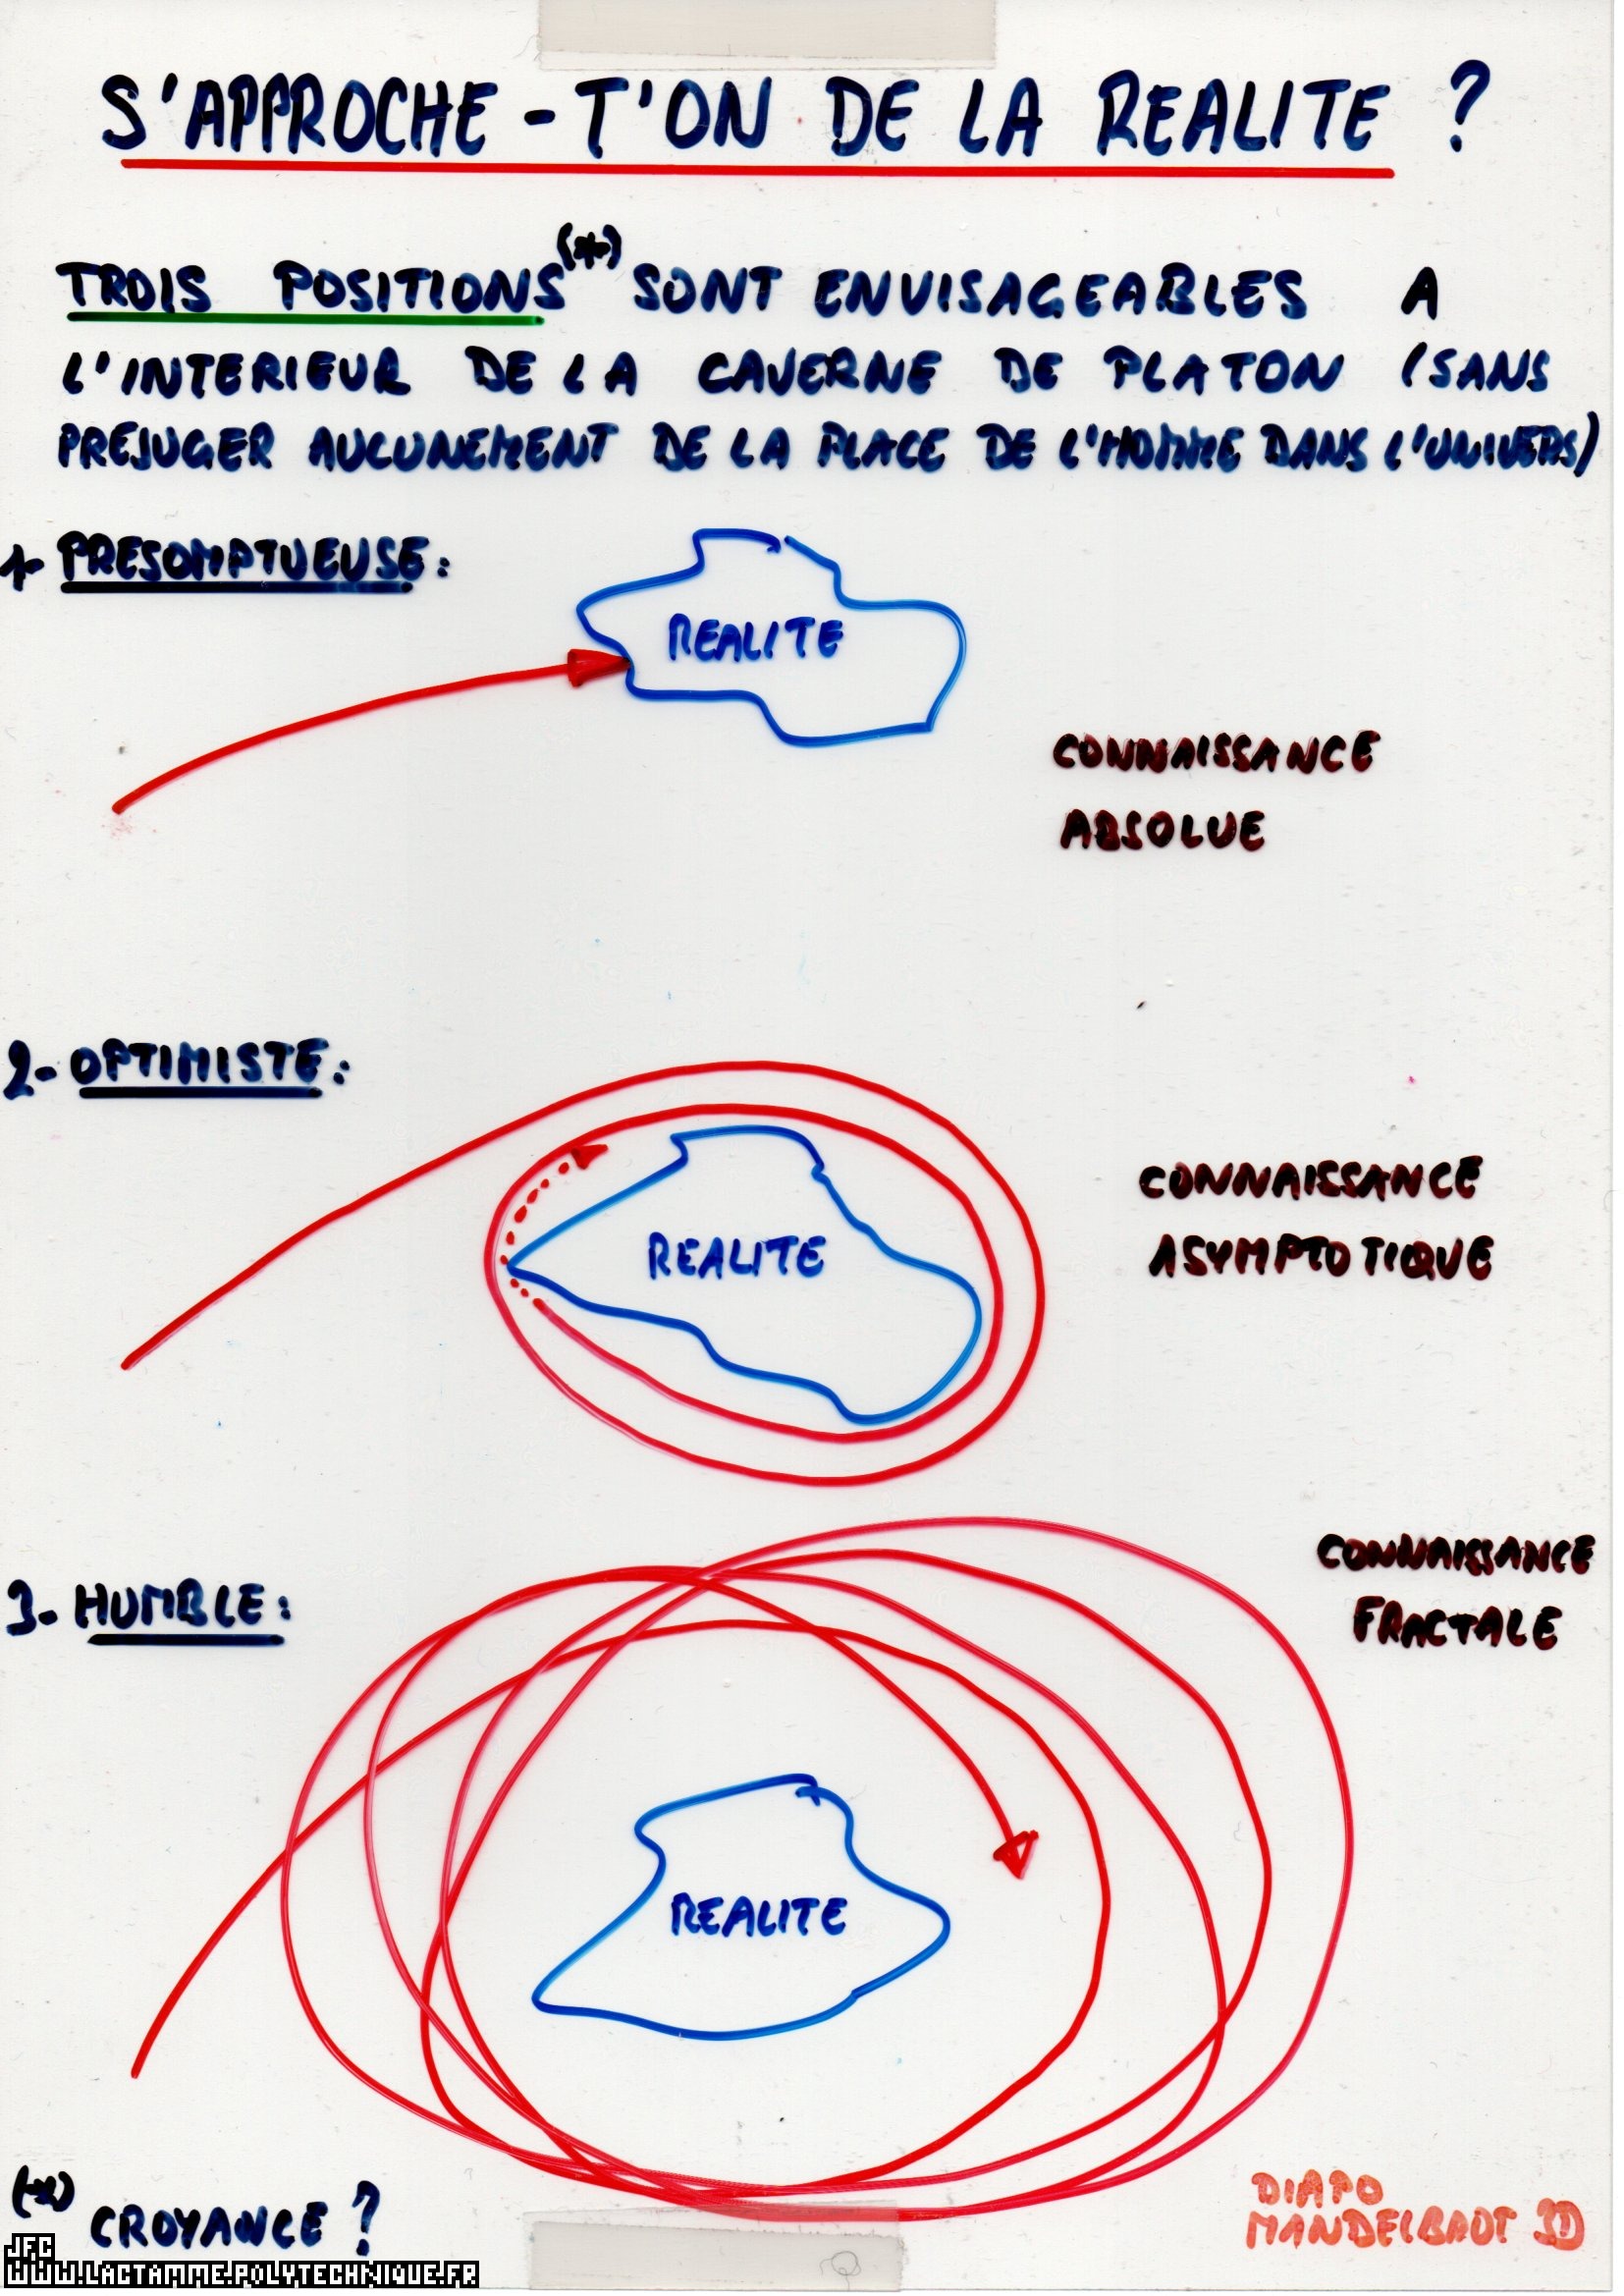 S'APPROCHE-T'ON DE LA REALITE ?
TROIS POSITIONS(*) SONT ENVISAGEABLES A
L'INTERIEUR DE LA CAVERNE DE PLATON (SANS
PREJUGER AUCUNEMENT DE LA PLACE DE L'HOMME DANS L'UNIVERS)
1- PRESOMPTUEUSE:
REALITE
CONNAISSANCE
ABSOLUE
2- OPTIMISTE:
REALITE
CONNAISSANCE
ASYMPTOTIQUE
3- HUMBLE:
CONNAISSANCE
FRACTALE
REALITE
(*) CROYANCE ?
DIAPO
MANDELBROT 3D
JFC
WWW.LACTAMME.POLYTECHNIQUE.FR